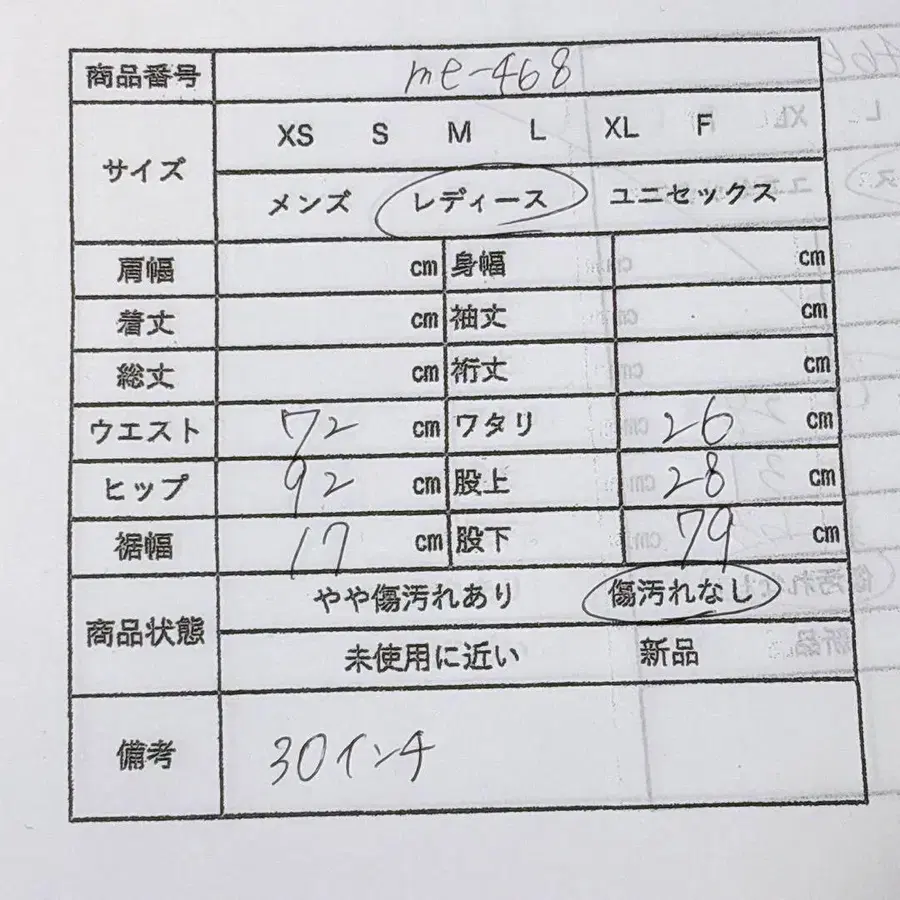 商品番号 me-468
サイズ XS S M L XL F
メンズ レディース ユニセックス
肩幅 cm 身幅 cm
着丈 cm 袖丈 cm
総丈 cm 裄丈 cm
ウエスト 72 cm ワタリ 26 cm
ヒップ 92 cm 股上 28 cm
裾幅 17 cm 股下 79 cm
商品状態 やや傷汚れあり 傷汚れなし
未使用に近い 新品
備考 30インチ